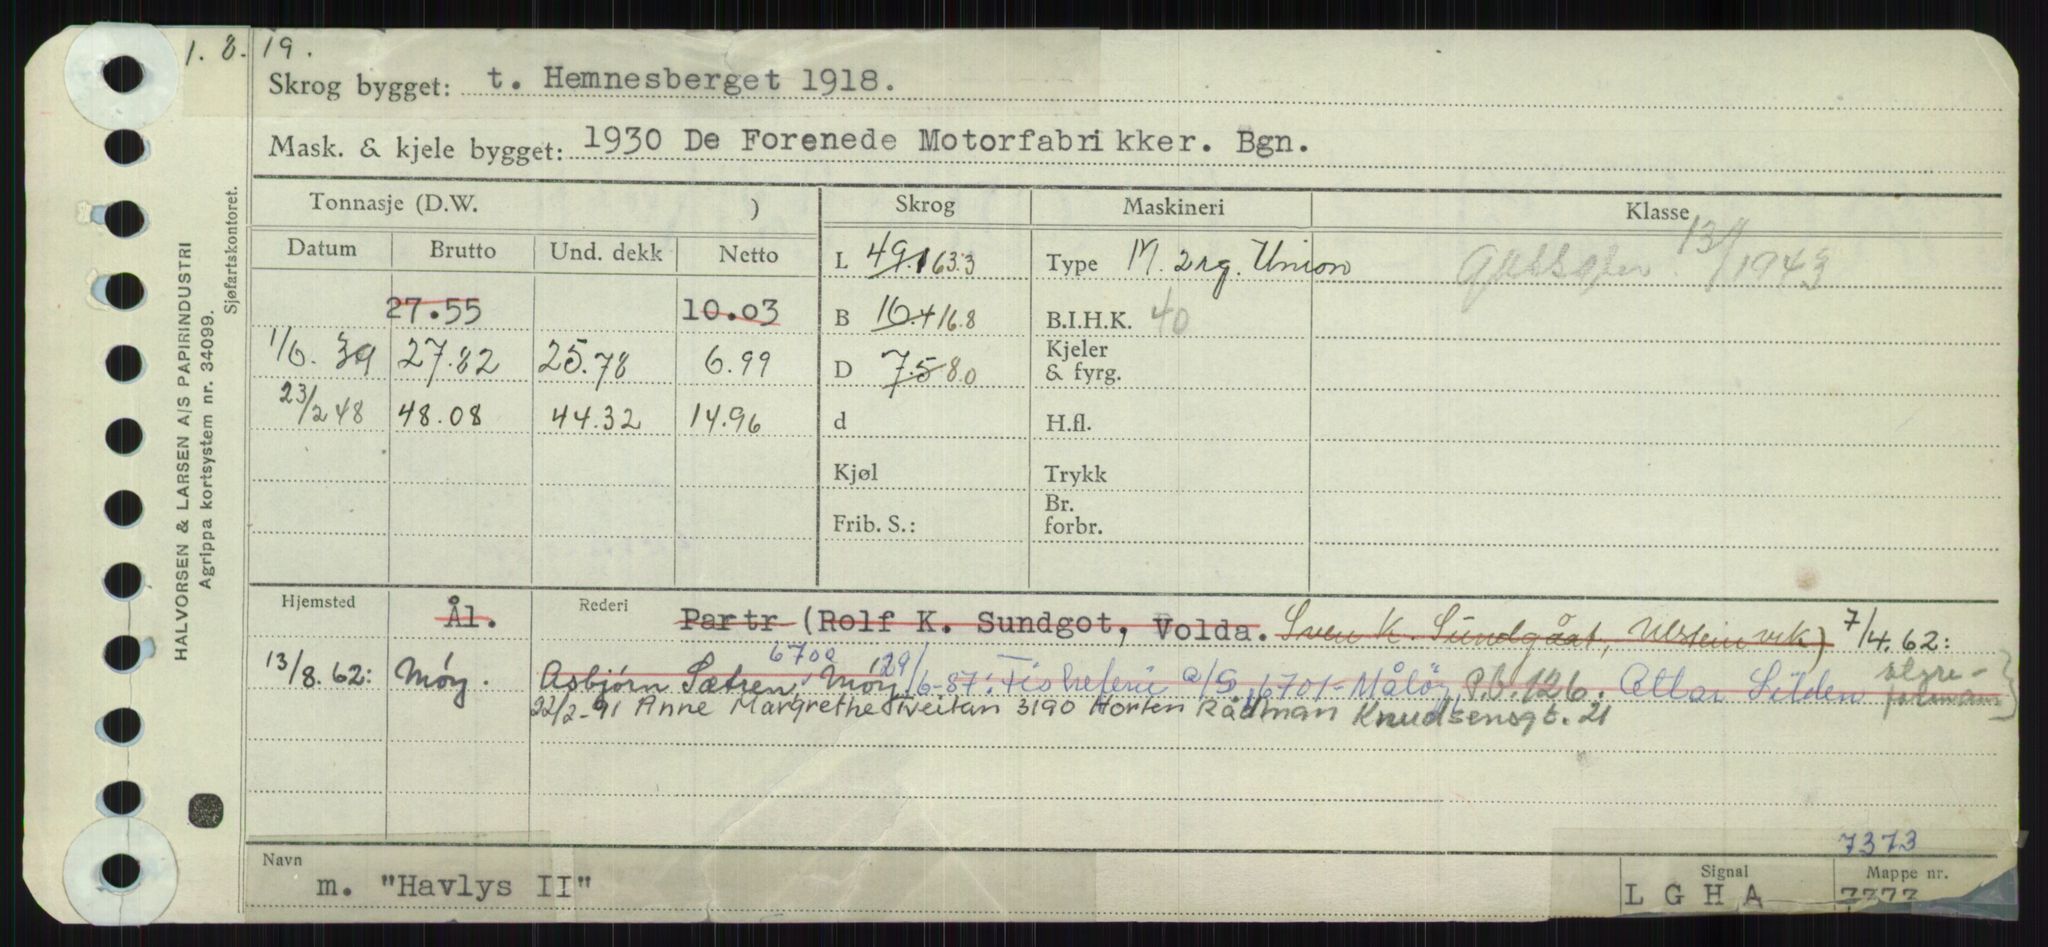 1. 8. 19.
Skrog bygget: t. Hemnesberget 1918.
Mask. & kjele bygget: 1930 De Forenede Motorfabrikker. Bgn.
HALVORSEN & LARSEN A/S PAPIRINDUSTRI
Agrippa kortsystem nr. 34099.
Sjøfartskontoret.
Tonnasje (D.W. ) Skrog Maskineri Klasse
Datum Brutto Und. dekk Netto
L 49.1 63.3 Type M. 2 sg. Union 13/ 1943
27.55 10.03 B 16.4 16.8 B.I.H.K. 40
1/6. 39 27.82 25.78 6.99 D 7.5 8.0 Kjeler & fyrg.
23/2 48 48.08 44.32 14.96 d H.fl.
Kjøl Trykk
Frib. S.: Br. forbr.
Hjemsted Ål. Rederi Partr (Rolf K. Sundgot, Volda. Sven K. Sundgåat, Ulsteinvik) 7/4.62:
13/8.62: Möy. Asbjörn Sætren, 6700 Möy 29/6-87: Fiskeferie a/s, 6701-Målöy P.b. 126. Atlar Silden styre-formann
22/2-91 Anne Margrethe Tveitan 3190 Horten Rådman Knudsensgt. 21
7373
Navn m. "Havlys II" Signal L G H A Mappe nr. 7377